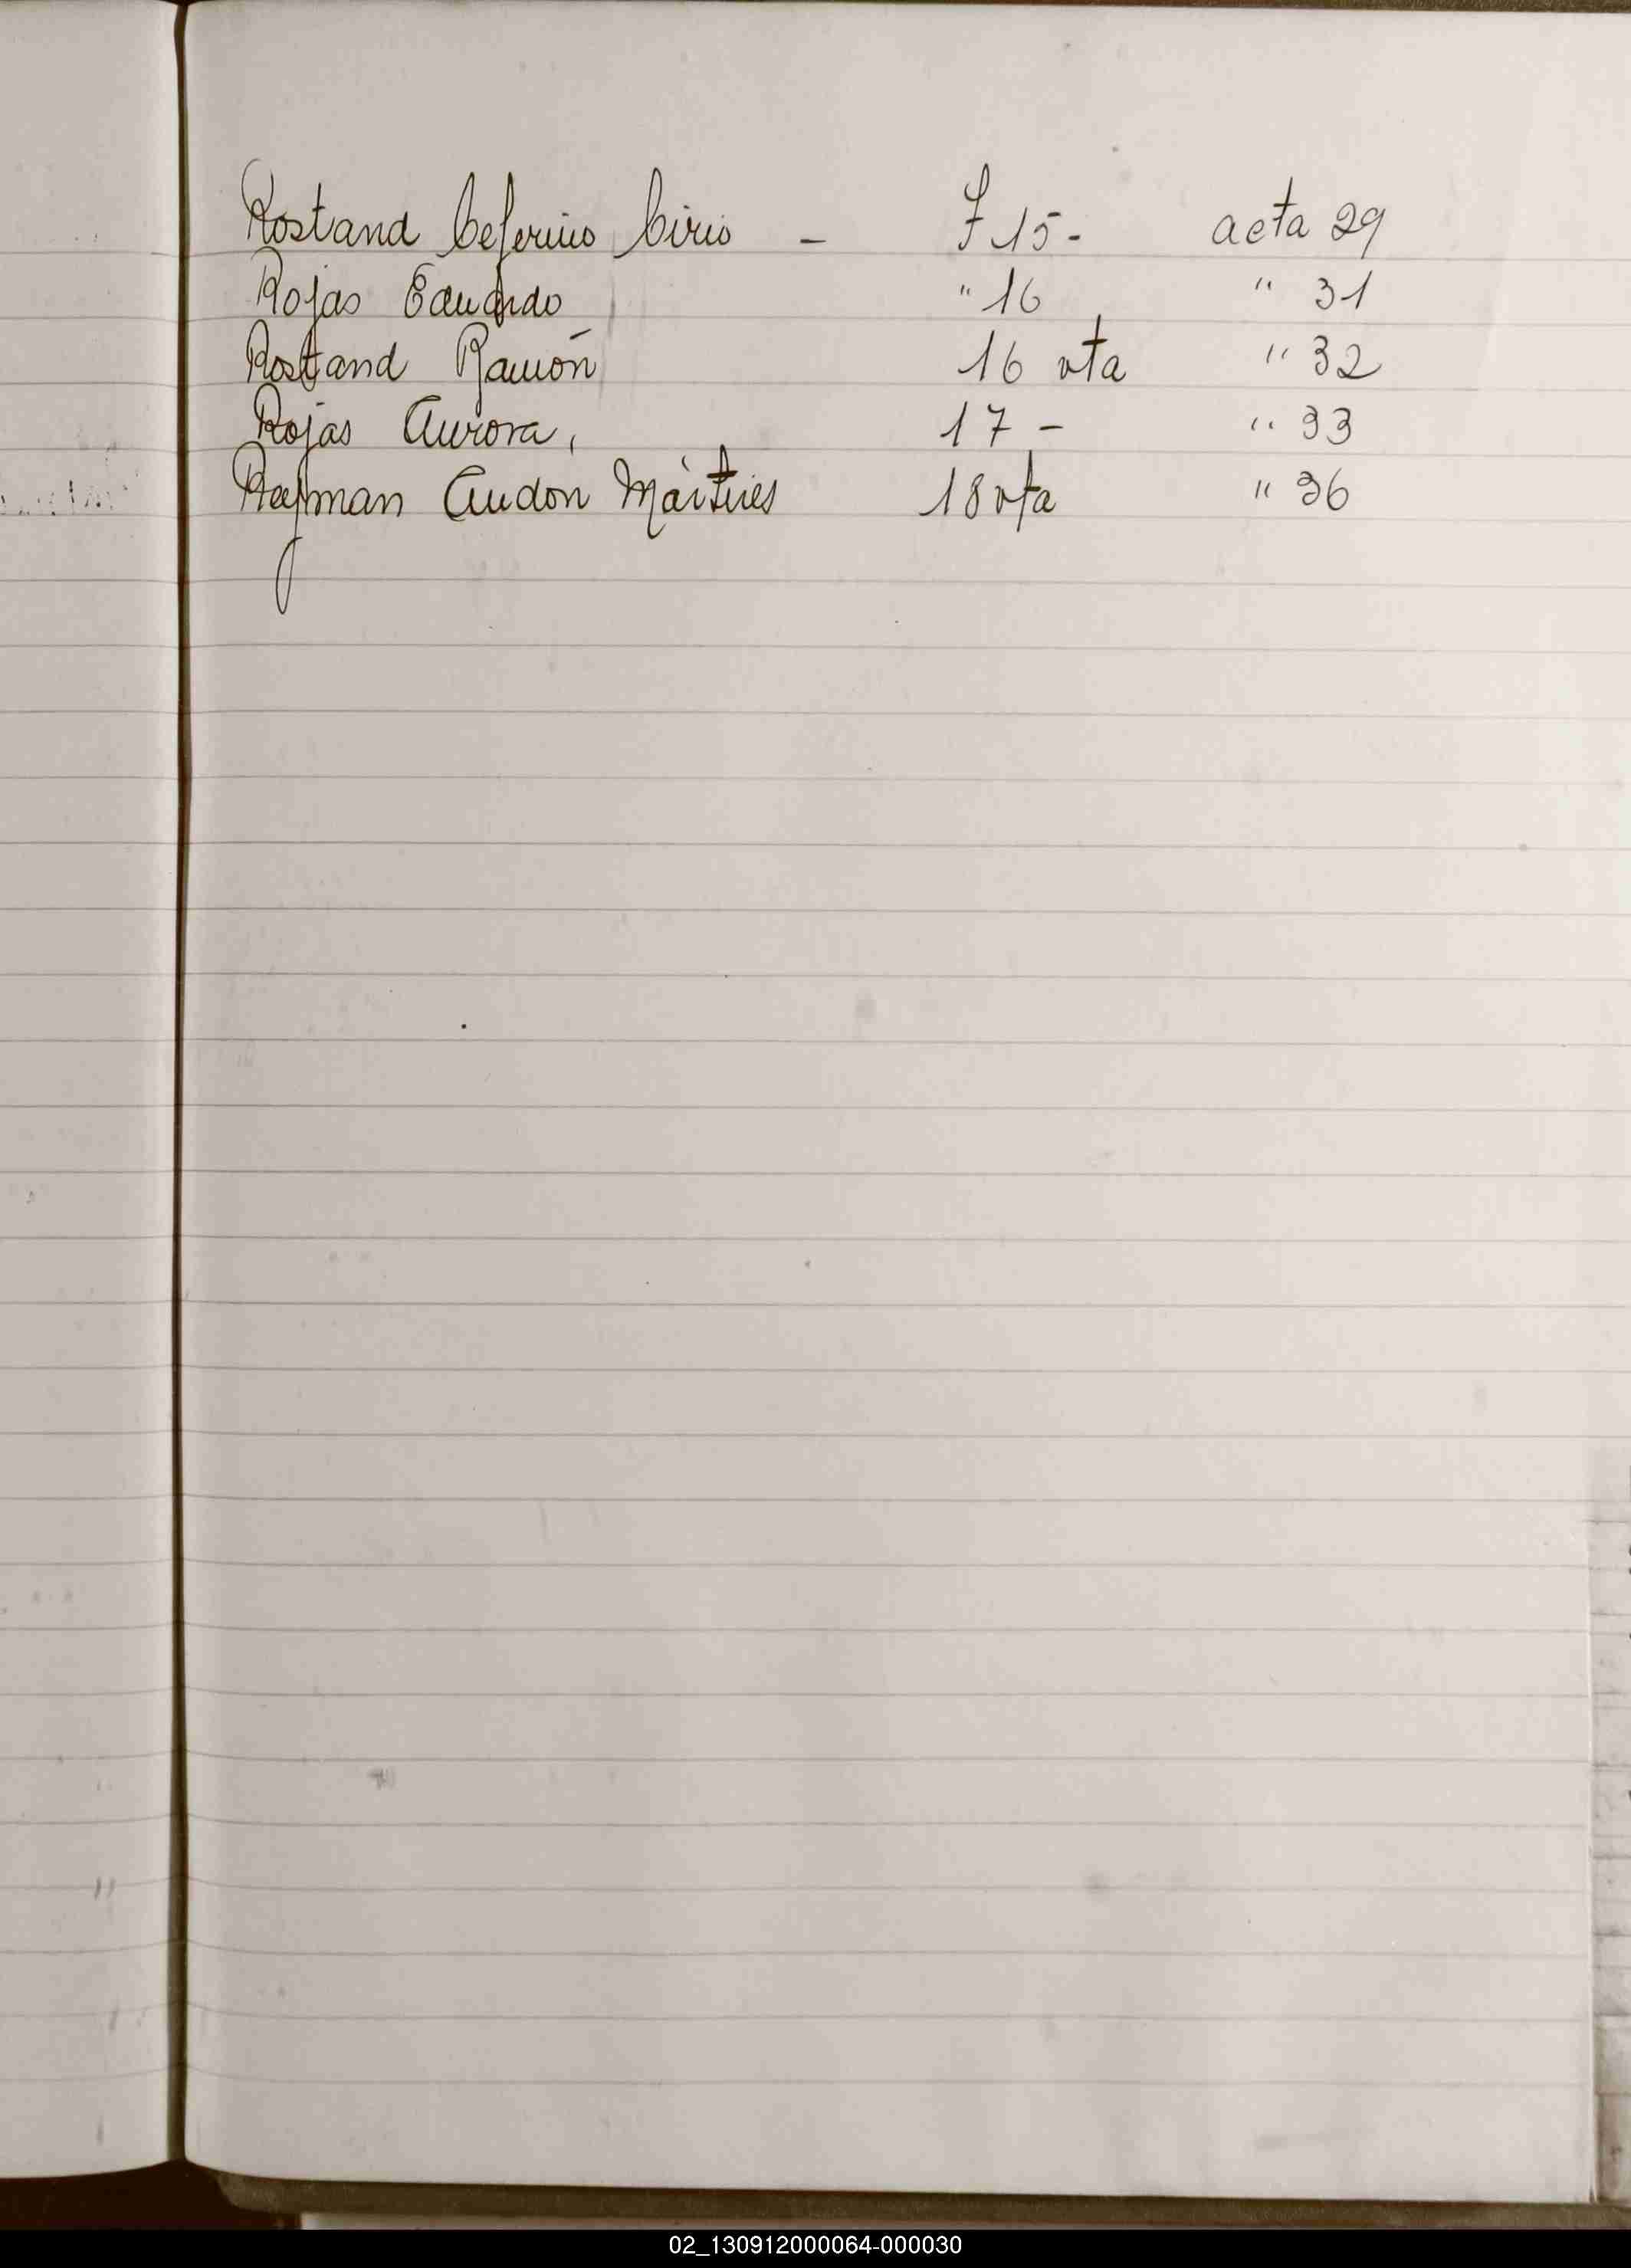 Rostand Ceferino Cirio - F 15 - acta 29
Rojas Eduardo " 16 " 31
Rostand Ramón 16 vta " 32
Rojas Aurora, 17 - " 33
Audon Mártires 18 vta " 36
02_130912000064-000030